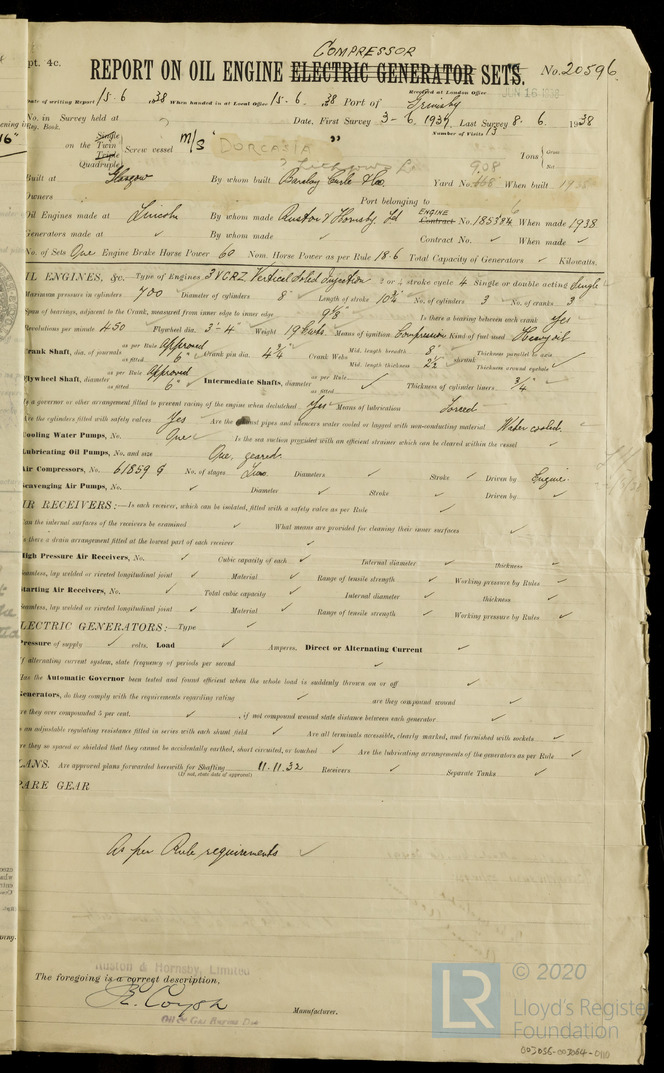 pt. 4c.
COMPRESSOR
REPORT ON OIL ENGINE ELECTRIC GENERATOR SETS. No. 20596.
Received at London Office JUN 16 1938
ate of writing Report 15-6 1938 When handed in at Local Office 15.6. 1938 Port of Grimsby
No. in Survey held at Date, First Survey 3-6, 1937 Last Survey 8.6. 1938
Reg. Book. Number of Visits 13
on the Single Twin Triple Quadruple Screw vessel M/S "DORCASIA" Tons Gross Net
Built at Glasgow By whom built Barclay Curle & Co. Yard No. 668 908 When built 1938
Owners Port belonging to
Oil Engines made at Lincoln By whom made Ruston & Hornsby Ltd ENGINE Contract No. 185384 6 When made 1938
Generators made at ✓ By whom made ✓ Contract No. ✓ When made ✓
No. of Sets One Engine Brake Horse Power 60 Nom. Horse Power as per Rule 18.6 Total Capacity of Generators ✓ Kilowatts.
IL ENGINES, &c. Type of Engines 3VCRZ. Vertical Solid Injection 2 or 4 stroke cycle 4 Single or double acting Single
Maximum pressure in cylinders 700 Diameter of cylinders 8" Length of stroke 10¾" No. of cylinders 3 No. of cranks 3
Span of bearings, adjacent to the Crank, measured from inner edge to inner edge 9⅞" Is there a bearing between each crank Yes
Revolutions per minute 450 Flywheel dia. 3'-4" Weight 19 Means of ignition Compression Kind of fuel used Heavy oil
Crank Shaft, dia. of journals as per Rule Approved as fitted 6" Crank pin dia. 4¾" Crank Webs Mid. length breadth 8" Mid. length thickness 2½" shrunk Thickness parallel to axis Thickness around eyehole ✓
Flywheel Shaft, diameter as per Rule Approved as fitted 6" Intermediate Shafts, diameter as per Rule as fitted ✓ Thickness of cylinder liners ¾"
Is a governor or other arrangement fitted to prevent racing of the engine when declutched Yes Means of lubrication Forced
Are the cylinders fitted with safety valves Yes Are the exhaust pipes and silencers water cooled or lagged with non-conducting material Water cooled.
Cooling Water Pumps, No. One Is the sea suction provided with an efficient strainer which can be cleared within the vessel ✓
Lubricating Oil Pumps, No. and size One, geared.
Air Compressors, No. 61859 G No. of stages Two Diameters ✓ Stroke ✓ Driven by Engine
Scavenging Air Pumps, No. ✓ Diameter ✓ Stroke ✓ Driven by ✓
IR RECEIVERS:—Is each receiver, which can be isolated, fitted with a safety valve as per Rule ✓
Can the internal surfaces of the receivers be examined ✓ What means are provided for cleaning their inner surfaces ✓
Is there a drain arrangement fitted at the lowest part of each receiver ✓
High Pressure Air Receivers, No. ✓ Cubic capacity of each ✓ Internal diameter ✓ thickness ✓
Seamless, lap welded or riveted longitudinal joint ✓ Material ✓ Range of tensile strength ✓ Working pressure by Rules ✓
Starting Air Receivers, No. ✓ Total cubic capacity ✓ Internal diameter ✓ thickness ✓
Seamless, lap welded or riveted longitudinal joint ✓ Material ✓ Range of tensile strength ✓ Working pressure by Rules ✓
LECTRIC GENERATORS:—Type ✓
Pressure of supply ✓ volts. Load ✓ Amperes. Direct or Alternating Current ✓
If alternating current system, state frequency of periods per second ✓
Has the Automatic Governor been tested and found efficient when the whole load is suddenly thrown on or off ✓
Generators, do they comply with the requirements regarding rating ✓ are they compound wound ✓
are they over compounded 5 per cent. ✓, if not compound wound state distance between each generator ✓
s an adjustable regulating resistance fitted in series with each shunt field ✓ Are all terminals accessible, clearly marked, and furnished with sockets ✓
re they so spaced or shielded that they cannot be accidentally earthed, short circuited, or touched ✓ Are the lubricating arrangements of the generators as per Rule ✓
LANS. Are approved plans forwarded herewith for Shafting 11.11.32 Receivers ✓ Separate Tanks ✓
(If not, state date of approval)
PARE GEAR
As per Rule requirements ✓
Ruston & Hornsby, Limited
The foregoing is a correct description,
Manufacturer.
Oil & Gas Engine Dept
LR © 2020
Lloyd's Register
Foundation
003056-003064-0110